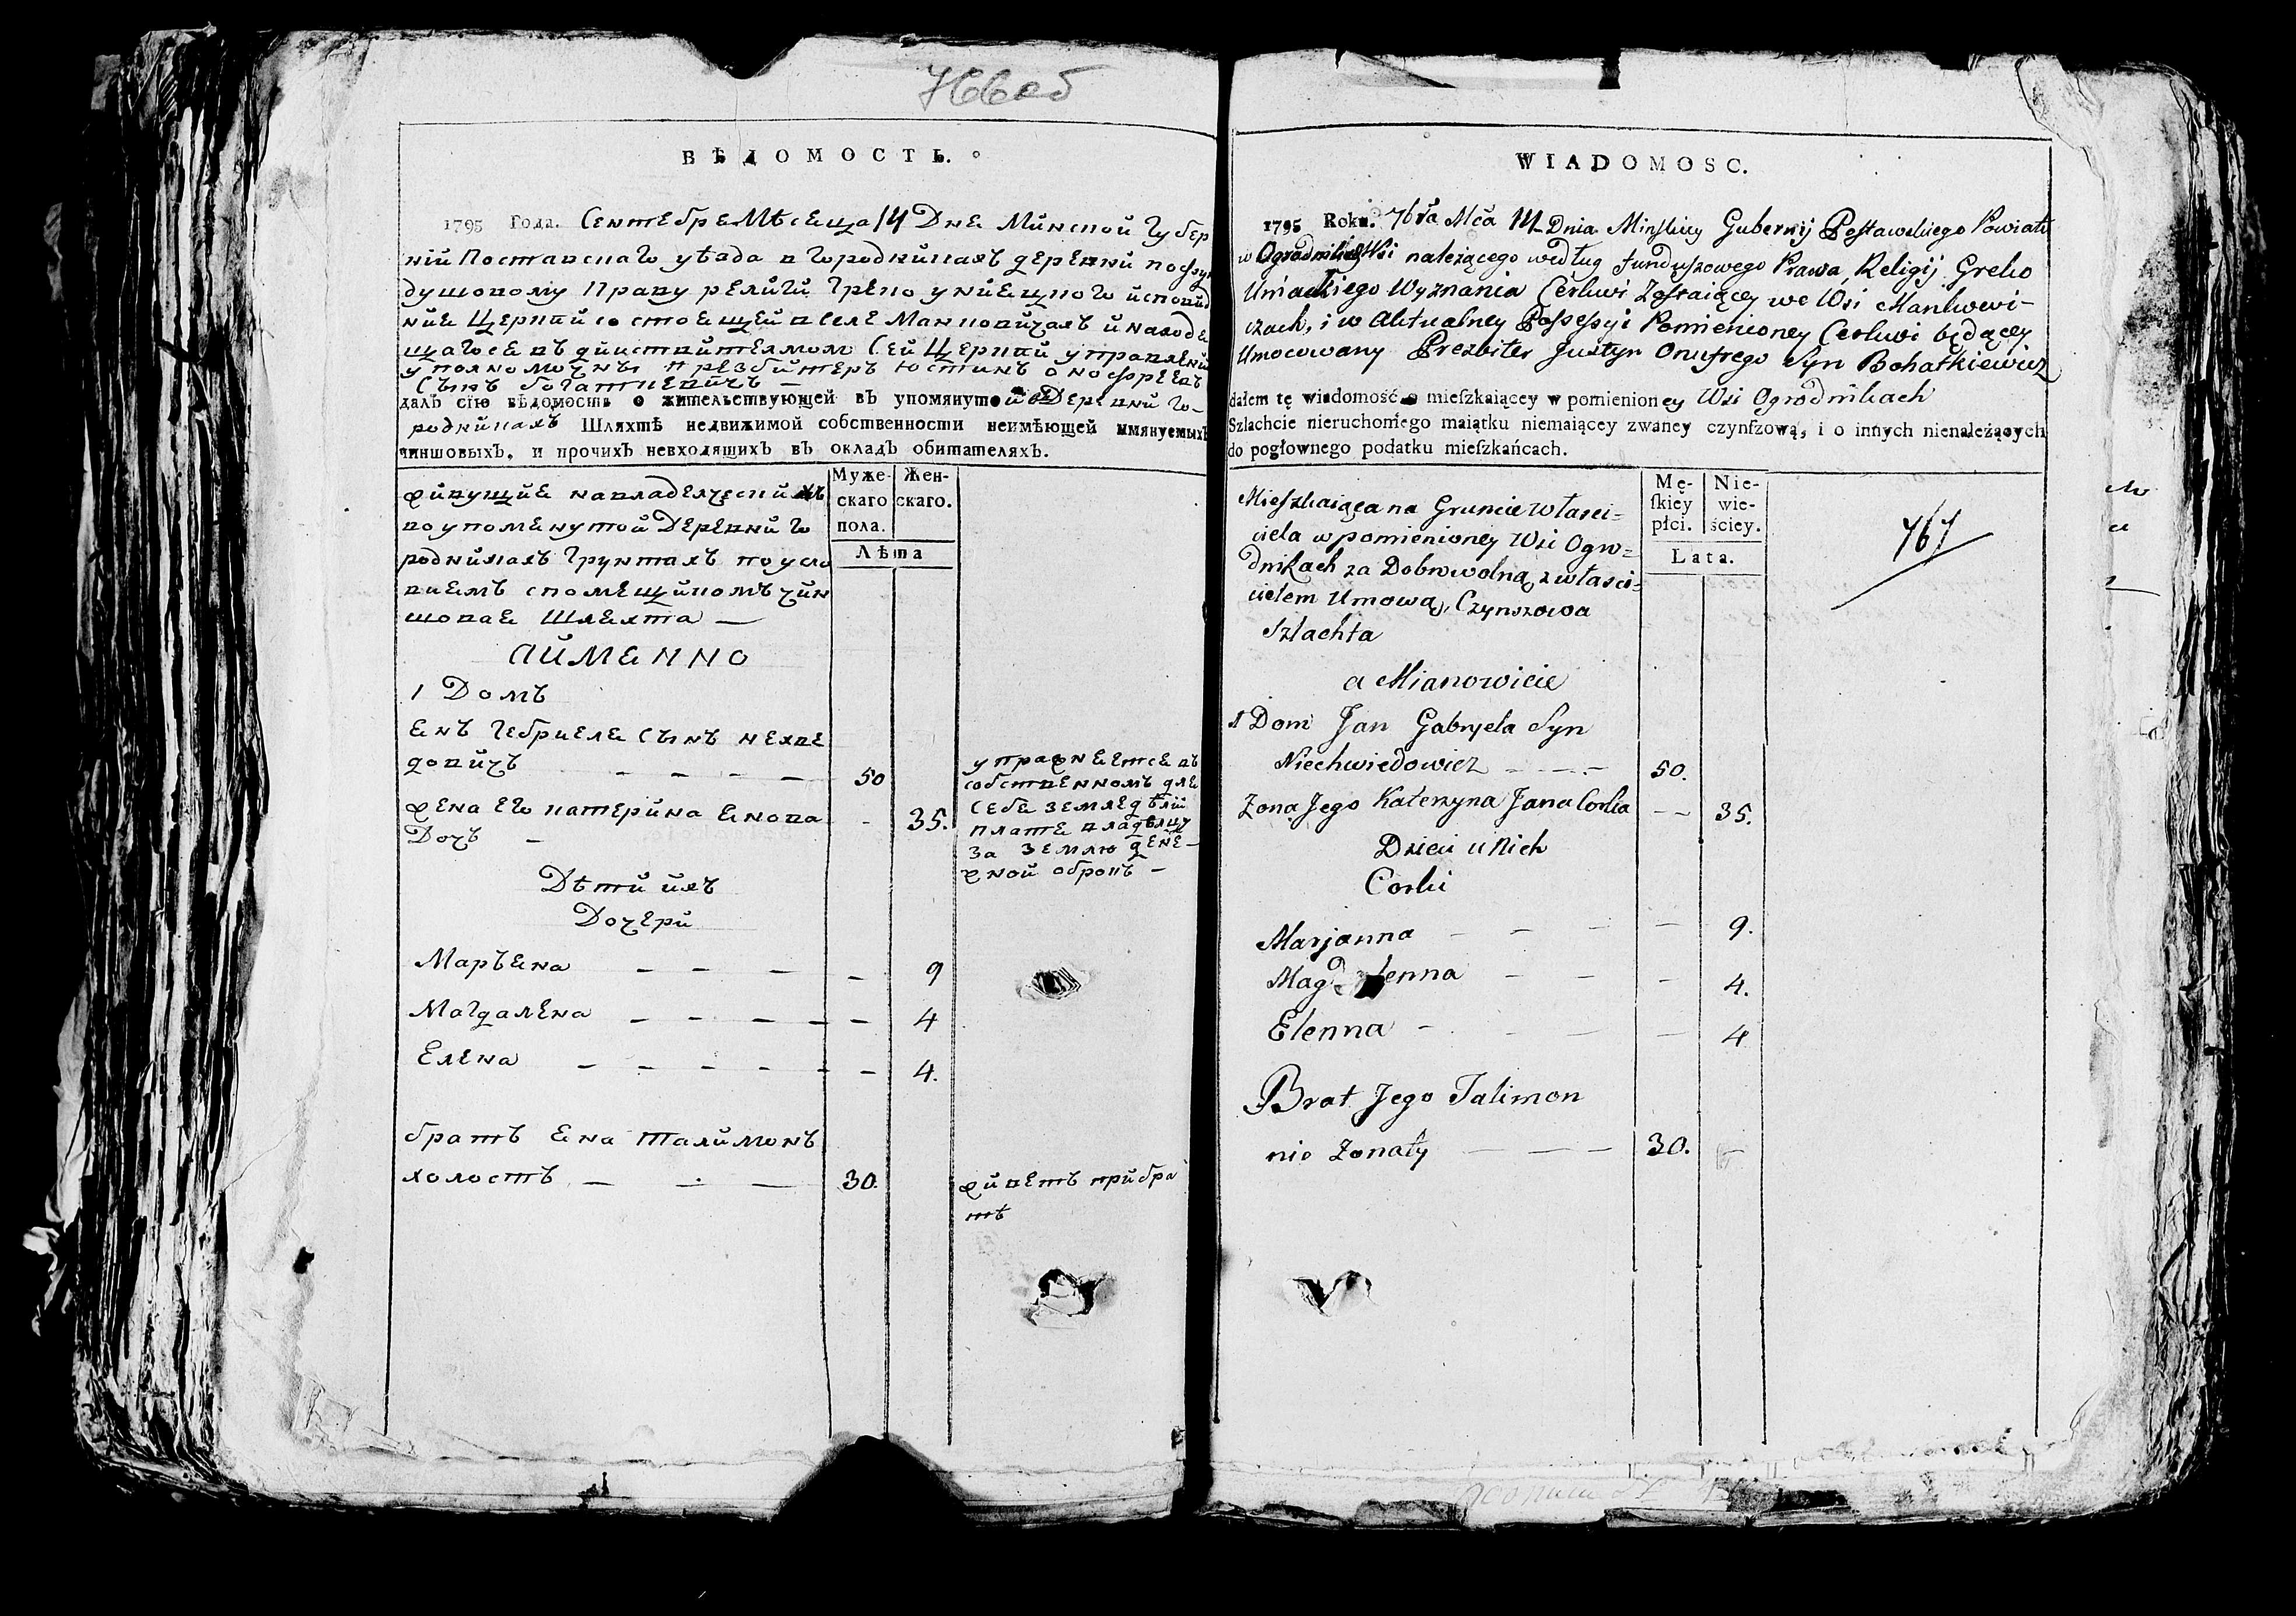 766об
ВѢДОМОСТЬ.
1795 Года. Сентебре Мѣсеца 14 Дне Минской Губер
ній Поставскаго уѣада в Городнйкахъ деревнй пофун
душовому Праву релйгй Греко унйецкого йсповйд
нйе Церквй состоещей в Селе Манковйчахъ й находе
щагосе въ дйиствйтелмом Сей Церквй управленй
уполномочны Презбйтеръ Юстинъ Онофреевъ
Сынъ богаткевйчъ —
далъ сію вѣдомость о жительствующей въ упомянутой Деревнй Го-
роднйкахъ Шляхтѣ недвижимой собственности неимѣющей имянуемыхъ
чиншовыхъ, и прочихъ невходящихъ въ окладъ обитателяхъ.
Муже-
скаго
пола.
Жен-
скаго.
Лѣта
жйвущйе навладелческйхъ
воупоменутой Деревнй Го
роднйкахъ Грунтахъ поусло
виемъ спомещйкомъ чйн
шовае Шлехта —
Айменно
1 Домъ
Енъ Гебриеле Сынъ нехве
довйчъ - - - - 50
жена его катерйна Енова - 35.
Дочъ -
упражнеетсе въ
собственномъ дле
Себе земледѣлій
плате владѣлцу
за землю дене-
жной оброкъ -
Дѣтй йхъ
Дочерй
Маръена - - - - 9
Магдалена - - - - - 4
Елена - - - - - - 4.
братъ Ена талймонъ
холостъ - - - 30.
жйветъ прйбра
тѣ
WIADOMOSC.
1795 Roku. 7bra Mca 14 Dnia Minskiey Gubernij Postawskiego Powiatu
w Ogrodnikach Wsi należącego według funduszowego Prawa, Religij Greko
Uniackiego Wyznania Cerkwi Zostaiącey we Wsi Mankowi-
czach, i w Aktualney Possessyi Pomienioney Cerkwi będącey
Umocowany Prezbiter Justyn Onufrego Syn Bohatkiewicz
dałem tę wiadomość o mieſzkaiącey w pomienioney Wsi Ogrodnikach
Szlachcie nieruchomego maiątku niemaiącey zwaney czynſzową, i o innych nienależących
do pogłownego podatku mieſzkańcach.
Mę-
ſkiey
płci.
Nie-
wie-
ściey.
Lata.
Mieszkaiąca na Gruncie własci=
ciela w pomienioney Wsi Ogro=
dnikach za Dobrowolną z właści=
cielem Umową, Czynszowa
Szlachta
767
a Mianowicie
1 Dom Jan Gabryela Syn
Niechwiedowicz - - - 50.
Zona Jego Katerzyna Jana Corka - - 35.
Dzieci u Nich
Corki
Marjanna - - - - 9.
Magdalenna - - - 4.
Elenna - - - - 4
Brat Jego Talimon
nie Zonaty - - - 30. -